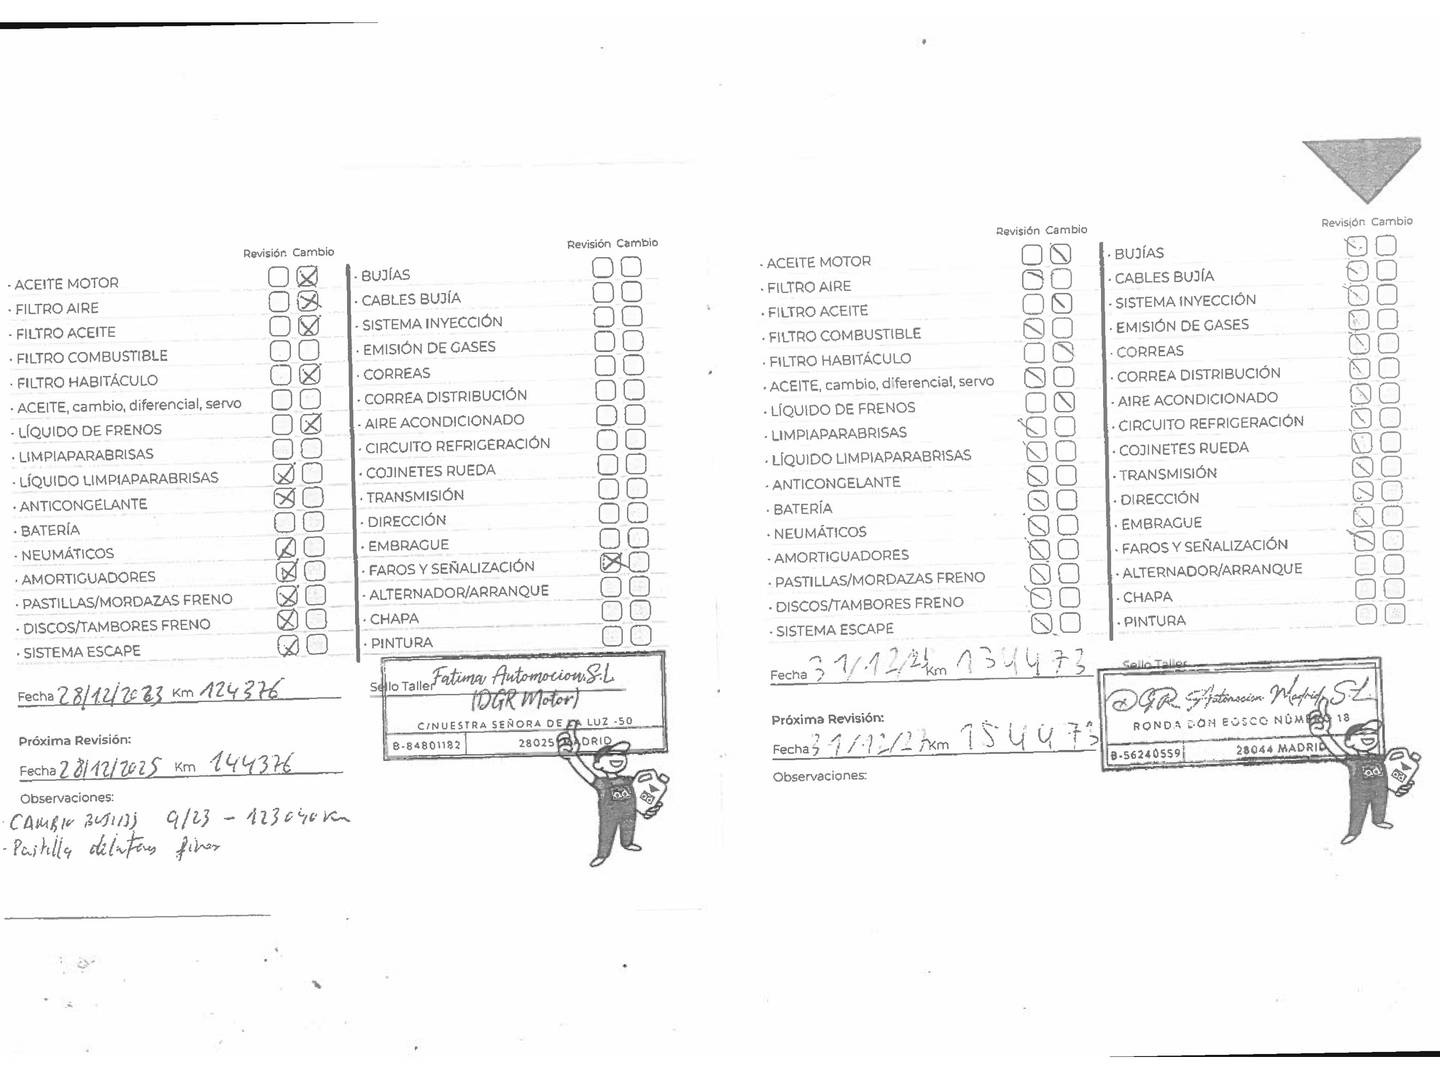 Revisión Cambio
· ACEITE MOTOR
· FILTRO AIRE
· FILTRO ACEITE
· FILTRO COMBUSTIBLE
· FILTRO HABITÁCULO
· ACEITE, cambio, diferencial, servo
· LÍQUIDO DE FRENOS
· LIMPIAPARABRISAS
· LÍQUIDO LIMPIAPARABRISAS
· ANTICONGELANTE
· BATERÍA
· NEUMÁTICOS
· AMORTIGUADORES
· PASTILLAS/MORDAZAS FRENO
· DISCOS/TAMBORES FRENO
· SISTEMA ESCAPE
Revisión Cambio
· BUJÍAS
· CABLES BUJÍA
· SISTEMA INYECCIÓN
· EMISIÓN DE GASES
· CORREAS
· CORREA DISTRIBUCIÓN
· AIRE ACONDICIONADO
· CIRCUITO REFRIGERACIÓN
· COJINETES RUEDA
· TRANSMISIÓN
· DIRECCIÓN
· EMBRAGUE
· FAROS Y SEÑALIZACIÓN
· ALTERNADOR/ARRANQUE
· CHAPA
· PINTURA
Fecha 28/12/2023 Km 124376
Sello Taller
Fatima Automocion S.L
(DGR Motor)
C/NUESTRA SEÑORA DE LA LUZ -50
B-84801182 28025 MADRID
Próxima Revisión:
Fecha 28/12/2025 Km 144376
Observaciones:
· CAMBIO 9/23 - 123040 km
· Pastilla delanteras finas
Revisión Cambio
· ACEITE MOTOR
· FILTRO AIRE
· FILTRO ACEITE
· FILTRO COMBUSTIBLE
· FILTRO HABITÁCULO
· ACEITE, cambio, diferencial, servo
· LÍQUIDO DE FRENOS
· LIMPIAPARABRISAS
· LÍQUIDO LIMPIAPARABRISAS
· ANTICONGELANTE
· BATERÍA
· NEUMÁTICOS
· AMORTIGUADORES
· PASTILLAS/MORDAZAS FRENO
· DISCOS/TAMBORES FRENO
· SISTEMA ESCAPE
Revisión Cambio
· BUJÍAS
· CABLES BUJÍA
· SISTEMA INYECCIÓN
· EMISIÓN DE GASES
· CORREAS
· CORREA DISTRIBUCIÓN
· AIRE ACONDICIONADO
· CIRCUITO REFRIGERACIÓN
· COJINETES RUEDA
· TRANSMISIÓN
· DIRECCIÓN
· EMBRAGUE
· FAROS Y SEÑALIZACIÓN
· ALTERNADOR/ARRANQUE
· CHAPA
· PINTURA
Fecha Km 134473
Sello Taller
DGR Automocion Madrid, S.L.
RONDA DON BOSCO NÚMERO 18
B-56240559 28044 MADRID
Próxima Revisión:
Fecha Km 154473
Observaciones: